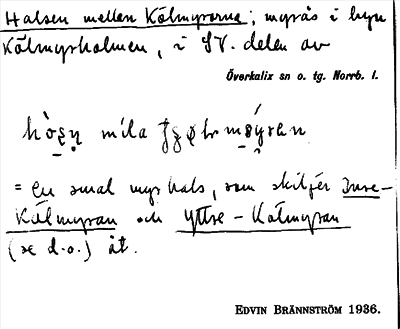 Halsen mellan Kälmyrarna; myrås i byn
Kälmyrholmen, i SV. delen av
Överkalix sn o. tg. Norrb. l.
mila
= En smal myrhals, som skiljer Inre-
Kälmyran och Yttre-Kälmyran
(se d.o.) åt.
EDVIN BRÄNNSTRÖM 1936.